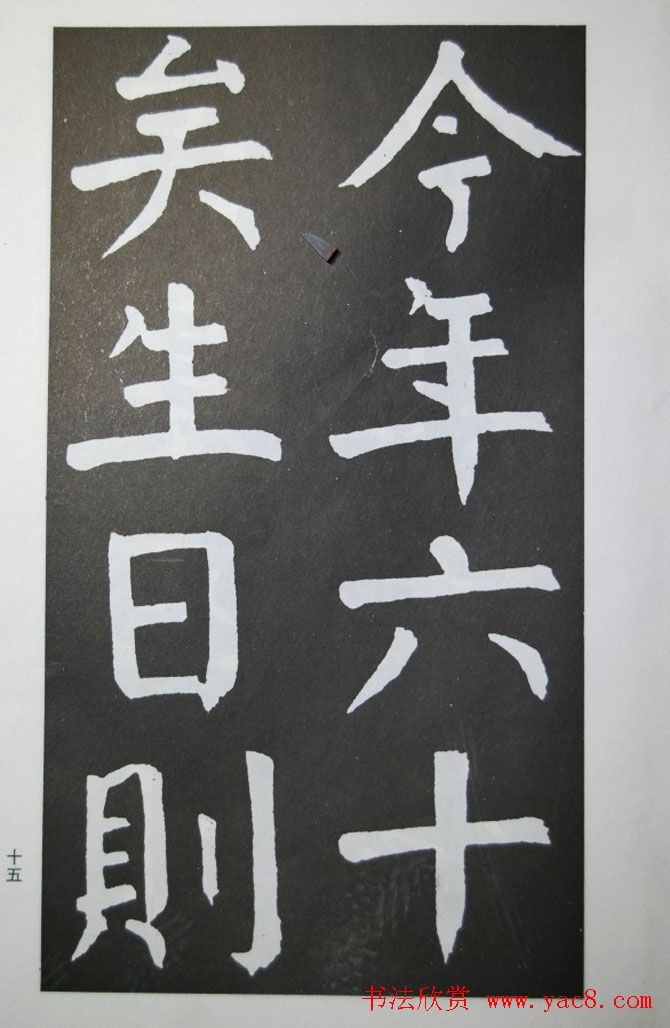 今年六十
矣生日則
十五
书法欣赏 www.yac8.com